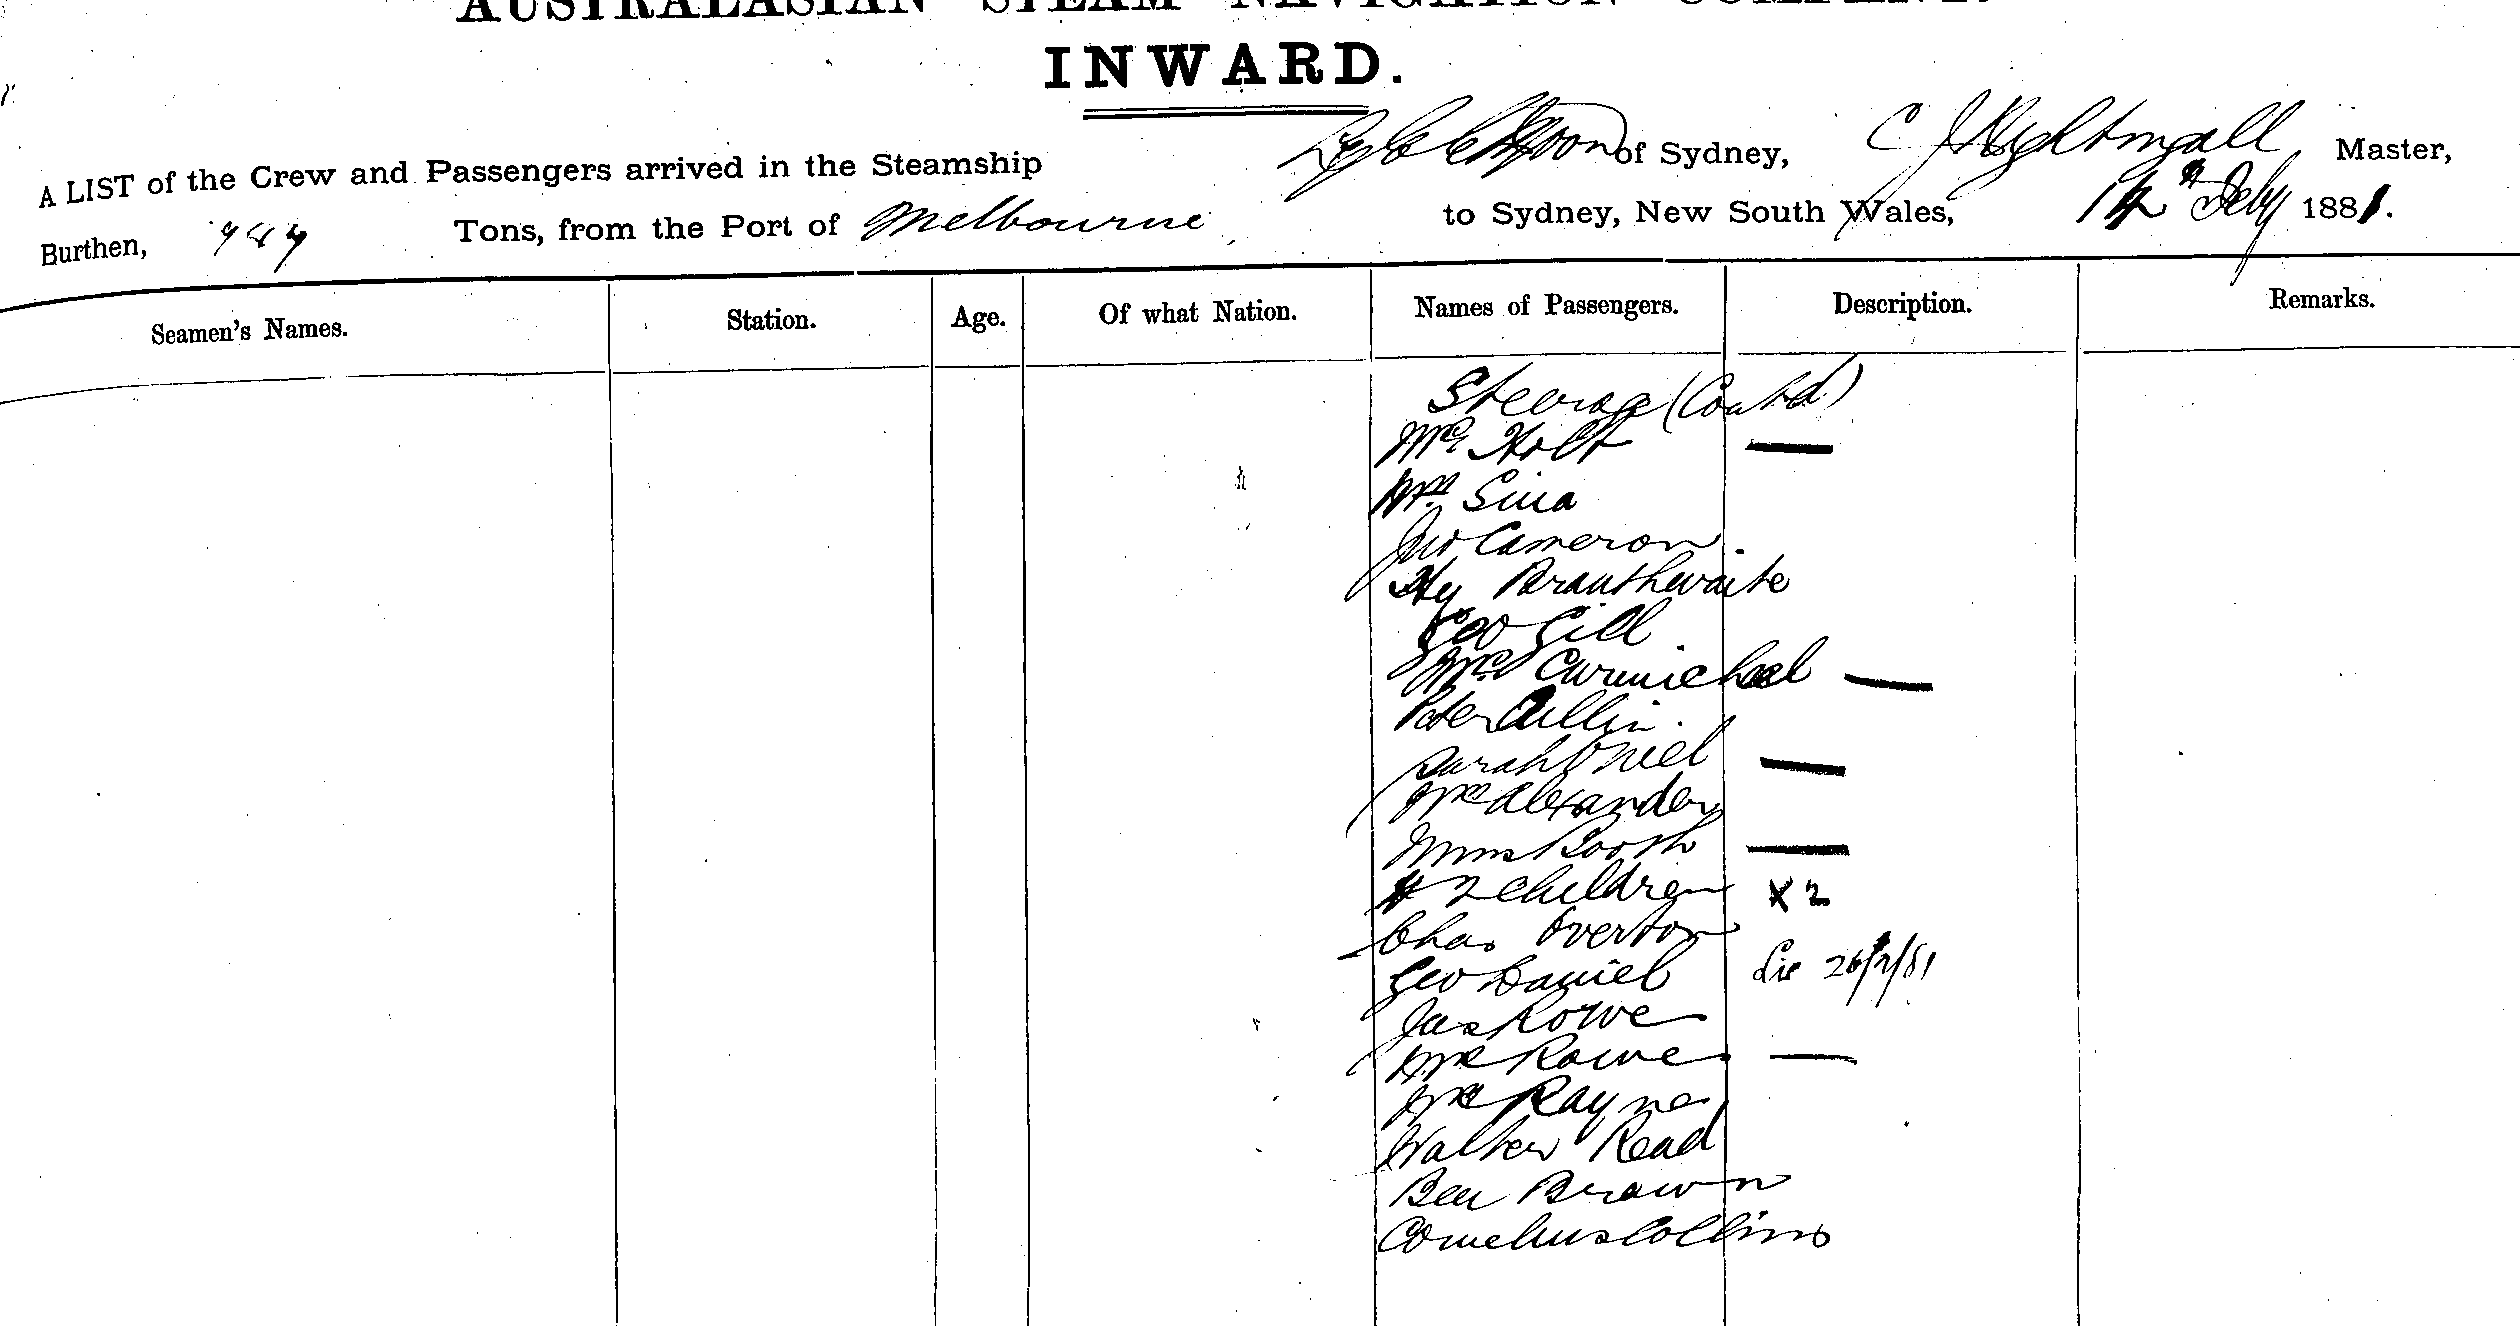 AUSTRALASIAN STEAM NAVIGATION COMPANY.
INWARD.
A LIST of the Crew and Passengers arrived in the Steamship of Sydney, C J Nightingall Master,
Burthen, Tons, from the Port of Melbourne to Sydney, New South Wales, 14th Feby 1881.
Seamen's Names. Station. Age. Of what Nation. Names of Passengers. Description. Remarks.
Steerage (Contd)
Mrs Holt —
Mr Sina
Jno Cameron.
Hy Branthwaite
Geo Gill
Mrs Carmichael —
Peter Cullin.
Sarah O'Niel —
Mr Alexander
Mrs Booth —
& 2 children X 2
Chas Overton
Geo Daniel 26/2/81
Jas Rowe
Mrs Rowe —
Mr Rayne
Walter Read
Ben Brown
Cornelius Collins